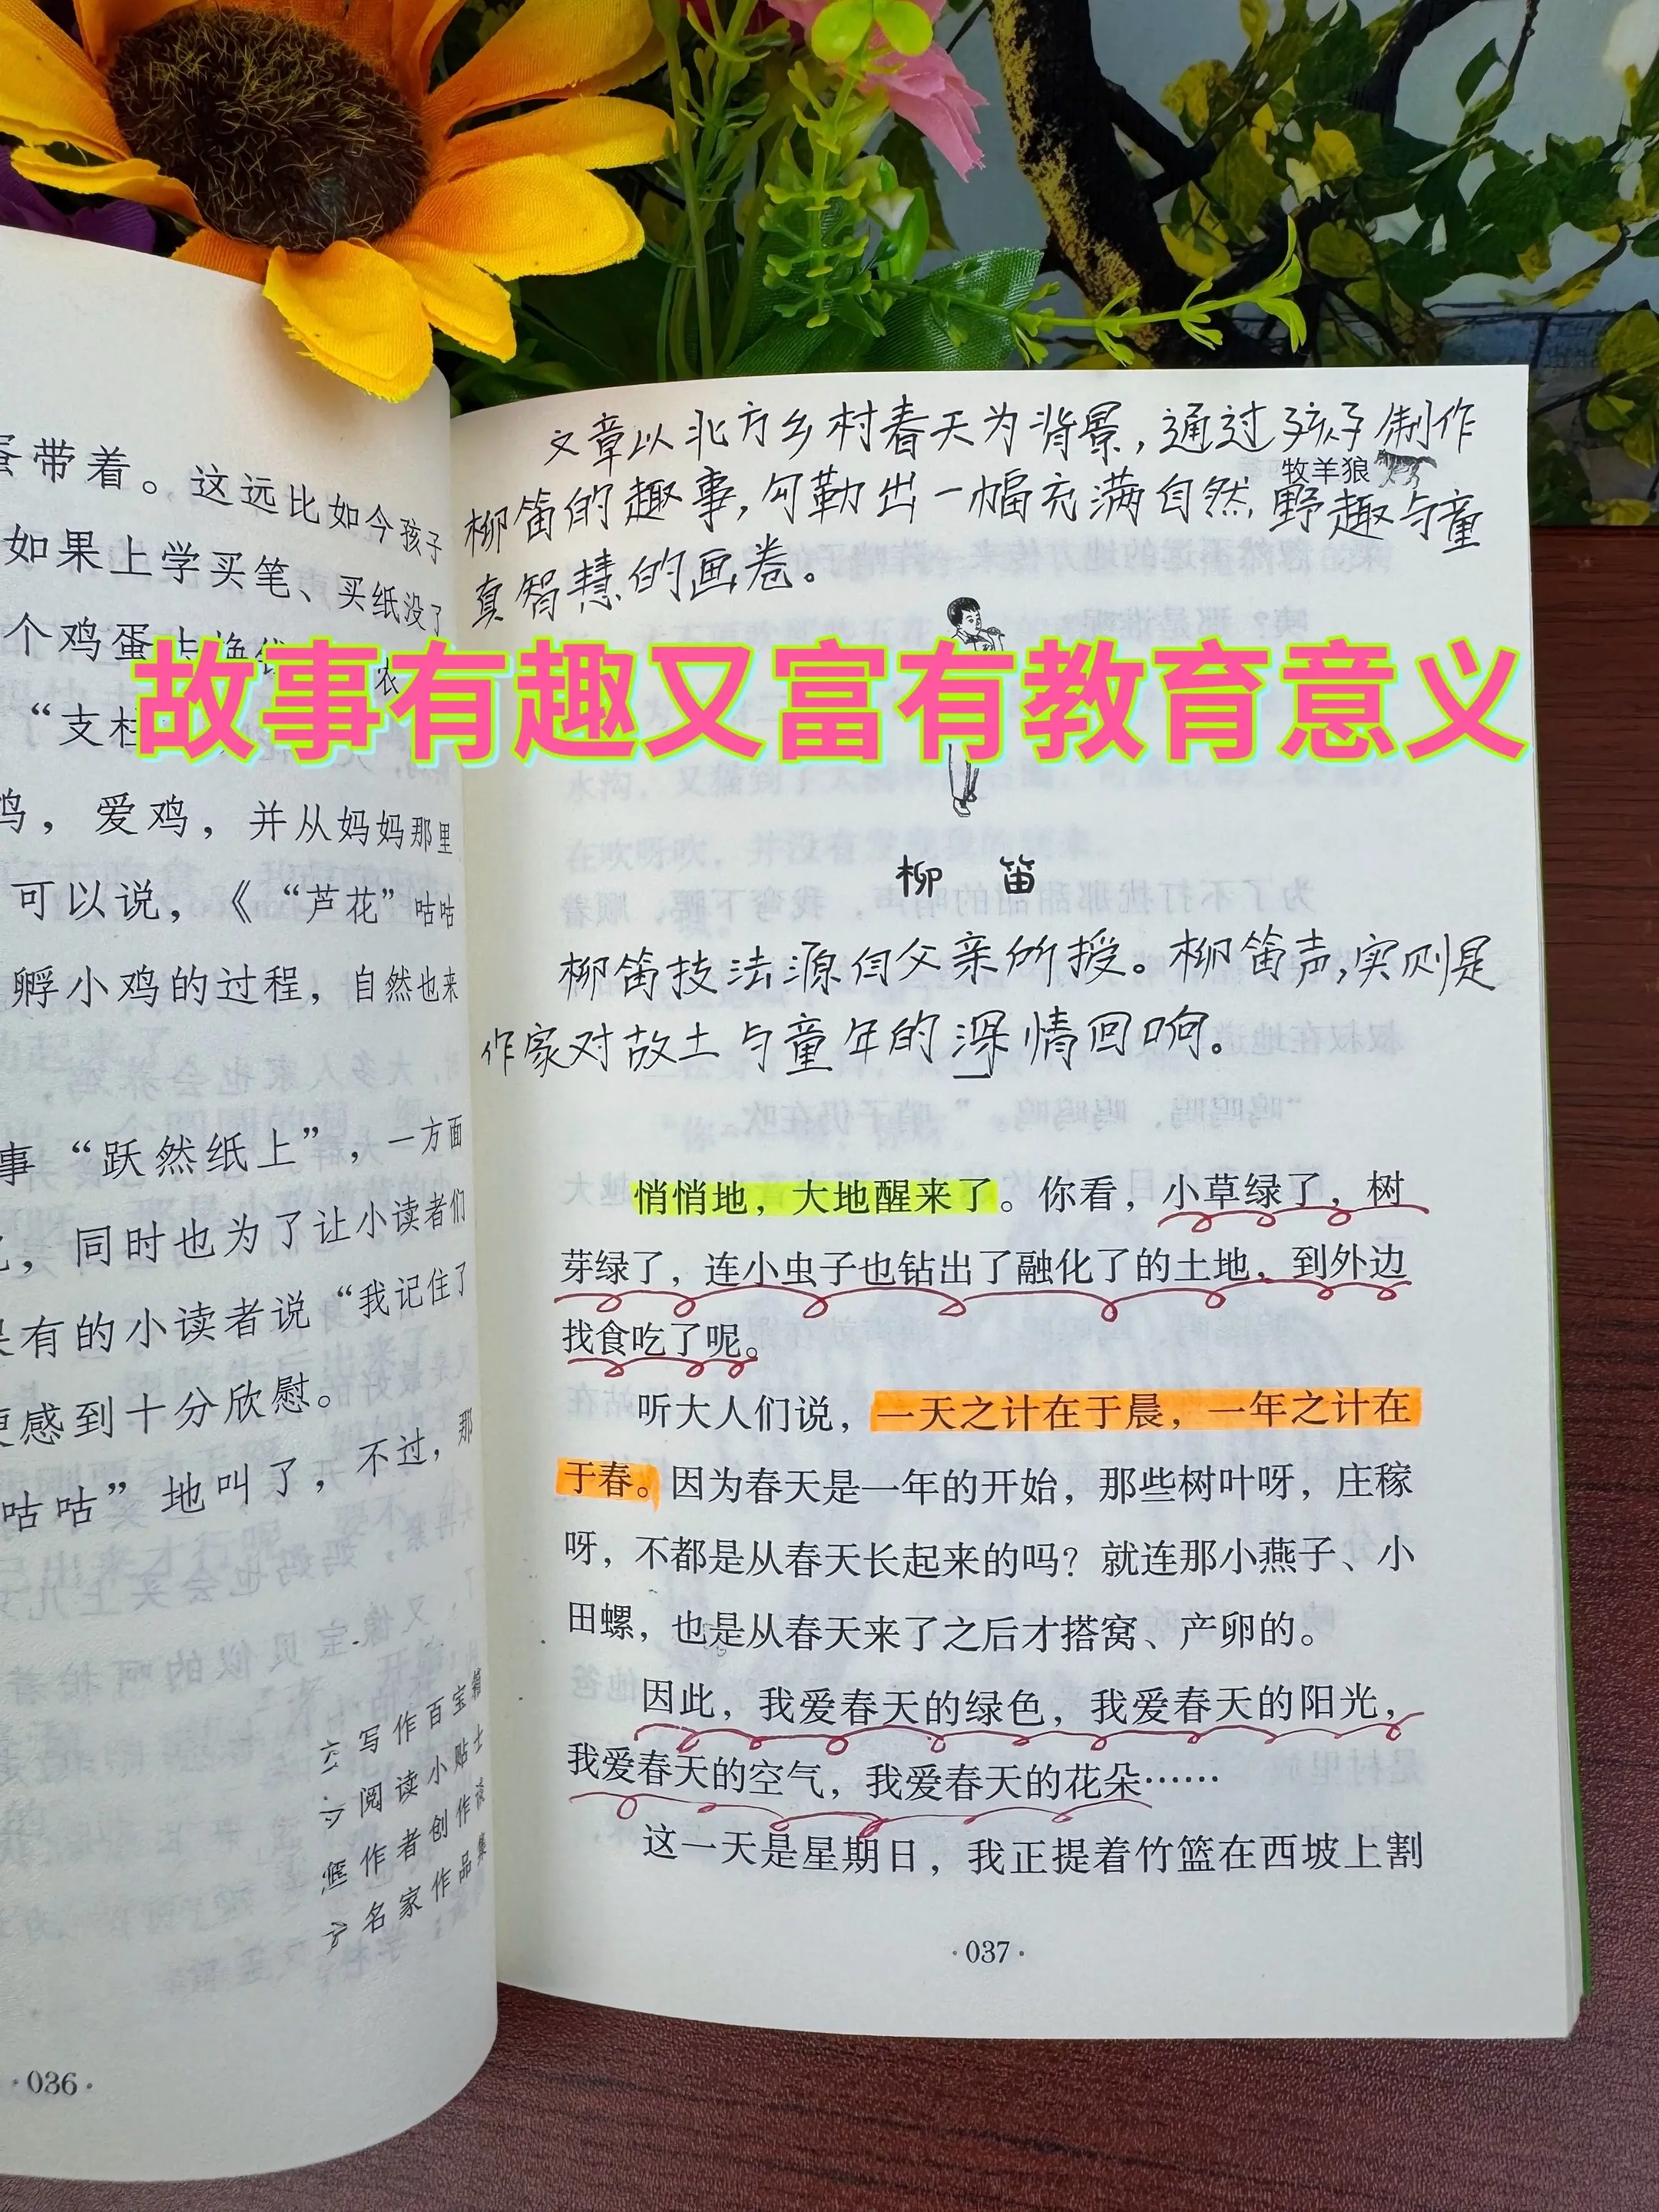 蛋带着。这远比如今孩子
如果上学买笔、买纸没了
个鸡蛋去换
农
“支柱
鸡，爱鸡，并从妈妈那里
可以说，《“芦花”咕咕
孵小鸡的过程，自然也来
事“跃然纸上”，一方面
，同时也为了让小读者们
有的小读者说“我记住了
更感到十分欣慰。
咕咕”地叫了，不过，那
写作百宝箱
阅读小贴士
作者创作谈
名家作品集
·036·
文章以北方乡村春天为背景，通过孩子制作
牧羊狼
柳笛的趣事，勾勒出一幅充满自然，野趣与童
真智慧的画卷。
故事有趣又富有教育意义
柳 笛
柳笛技法源自父亲所授。柳笛声，实则是
作家对故土与童年的深情回响。
悄悄地，大地醒来了。你看，小草绿了，树
芽绿了，连小虫子也钻出了融化了的土地，到外边
找食吃了呢。
听大人们说，一天之计在于晨，一年之计在
于春。因为春天是一年的开始，那些树叶呀，庄稼
呀，不都是从春天长起来的吗？就连那小燕子、小
田螺，也是从春天来了之后才搭窝、产卵的。
因此，我爱春天的绿色，我爱春天的阳光，
我爱春天的空气，我爱春天的花朵……
这一天是星期日，我正提着竹篮在西坡上割
·037·